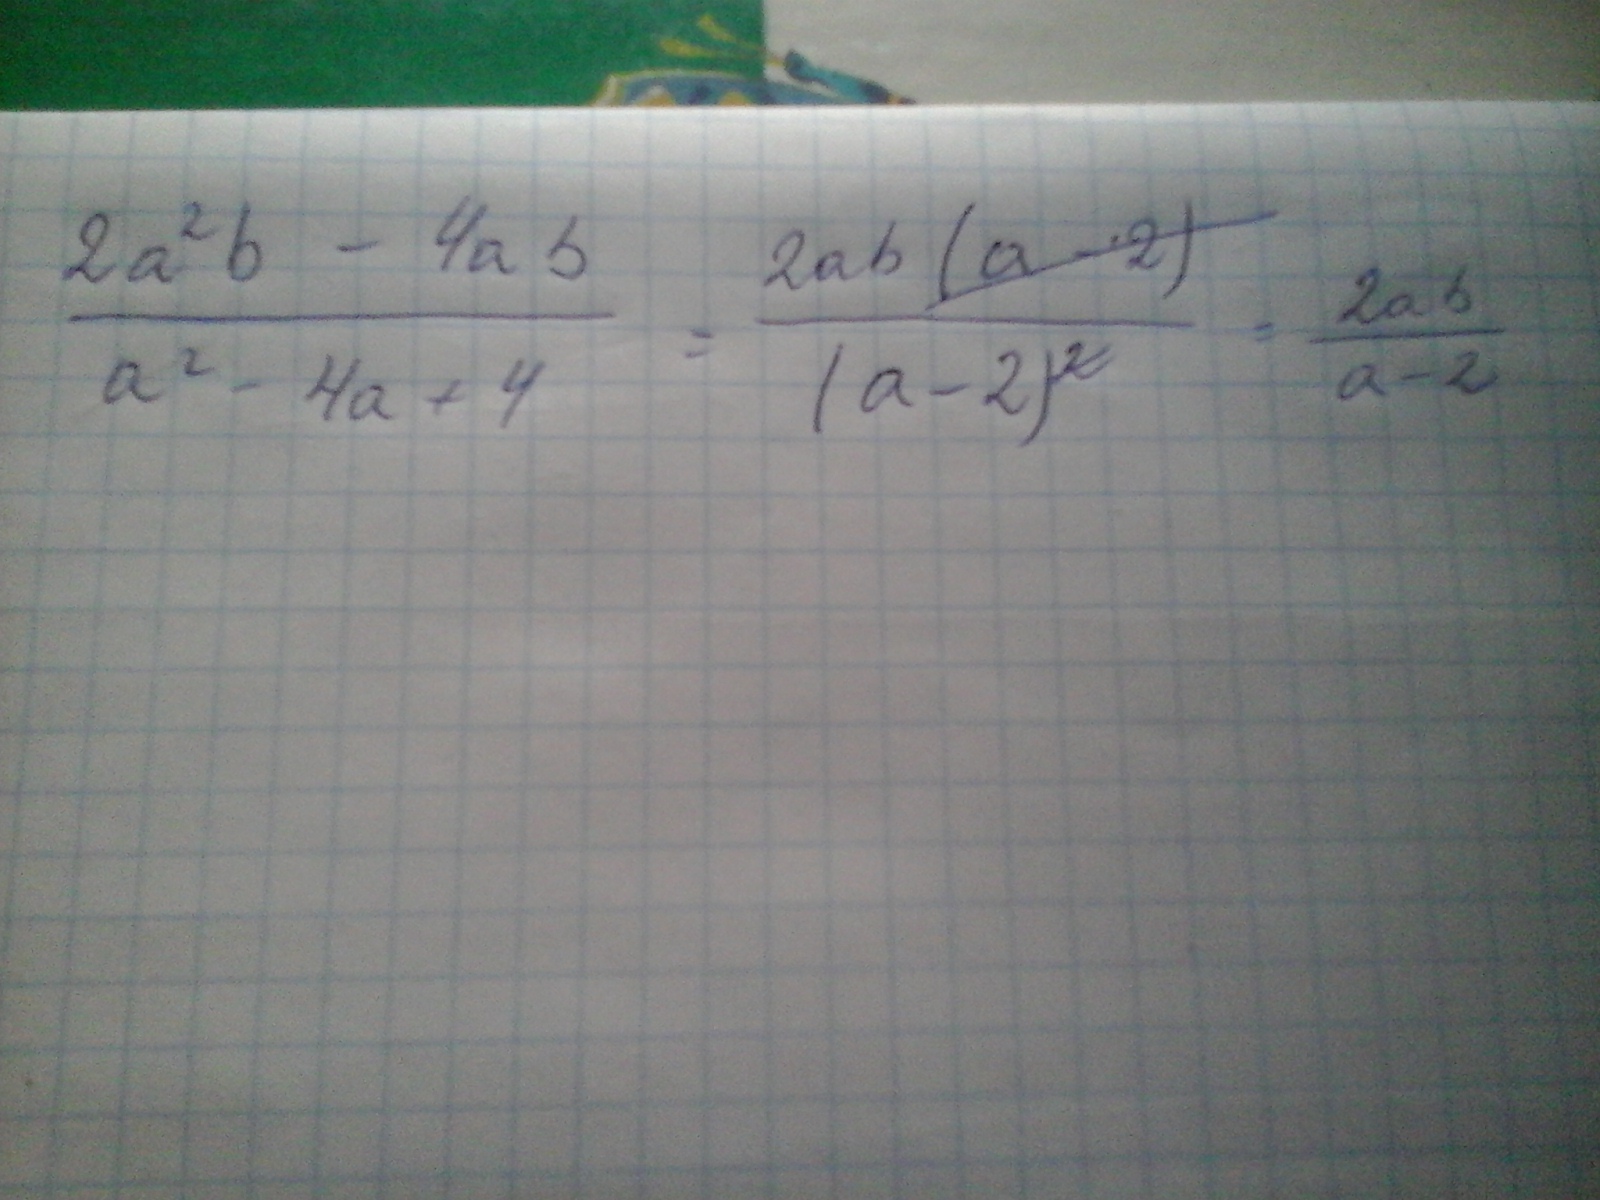 (2a²b - 4ab)/(a² - 4a + 4) = (2ab(a-2))/((a-2)²) = (2ab)/(a-2)